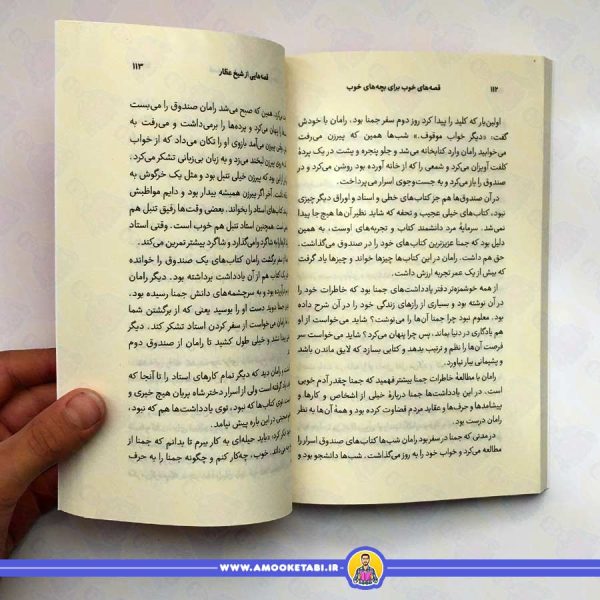 ۱۱۲
قصه‌های خوب برای بچه‌های خوب
اولین‌بار که کلید را پیدا کرد روز دوم سفر جمنا بود. رامان با خودش
گفت: «دیگر خواب موقوف.» شب‌ها همین که پیرزن می‌رفت
می‌خوابید رامان وارد کتابخانه می‌شد و جلو پنجره و پشت در یک پردهٔ
کلفت آویزان می‌کرد و شمعی را که از خانه آورده بود روشن می‌کرد و در
صندوق را باز می‌کرد و به جست‌وجوی اسرار می‌پرداخت.
در آن صندوق‌ها هم جز کتاب‌های خطی و اسناد و اوراق دیگر چیزی
نبود، کتاب‌های خیلی عجیب و تحفه که شاید نظیر آن‌ها هیچ‌جا پیدا
نمی‌شد. سرمایهٔ مرد دانشمند کتاب و تجربه‌های اوست، به همین
دلیل بود که جمنا عزیزترین کتاب‌های خود را در صندوق می‌گذاشت.
حق هم داشت. رامان در این کتاب‌ها چیزها خواند و چیزها یاد گرفت
که بیش از یک عمر تجربه ارزش داشت.
از همه خوشمزه‌تر دفتر یادداشت‌های جمنا بود که خاطرات خود را
در آن نوشته بود و بسیاری از رازهای زندگی خود را در آن شرح داده
بود. معلوم نبود چرا جمنا آن‌ها را می‌نوشت؟ شاید می‌خواست از او
هم یادگاری در دنیا بماند، پس چرا پنهان می‌کرد؟ شاید می‌خواست سر
فرصت آن‌ها را نظم و ترتیب بدهد و کتابی بسازد که لایق ماندن باشد
و پشیمانی ببار نیاورد.
رامان با مطالعهٔ خاطرات جمنا بیشتر فهمید که جمنا چقدر آدم خوبی
است. در این یادداشت‌ها جمنا دربارهٔ خیلی از اشخاص و کارها و
پیشامدها و حرف‌ها و عقاید مردم قضاوت کرده بود و همهٔ آن‌ها به نظر
رامان درست بود.
در مدتی که جمنا در سفر بود رامان شب‌ها کتاب‌های صندوق اسرار را
مطالعه می‌کرد و خواب خود را به روز می‌گذاشت. شب‌ها دانشجو بود و
قصه‌هایی از شیخ عطار
۱۱۳
همین که صبح می‌شد رامان صندوق را می‌بست
پنهان می‌کرد و پرده‌ها را برمی‌داشت و می‌رفت
وقتی پیرزن می‌آمد بازوی او را تکان می‌داد که از خواب
روی پیرزن لبخند می‌زد و به زبان بی‌زبانی تشکر می‌کرد.
از این بود که پیرزن خیلی تنبل بود و مثل یک خرگوش به
آخر اگر پیرزن همیشه بیدار بود و دایم مواظبش
کتاب‌های استاد را بخواند. بعضی وقت‌ها رفیق تنبل هم
همچنین استاد تنبل هم خوب است. وقتی استاد
به شاگرد وامی‌گذارد و شاگرد بیشتر تمرین می‌کند.
سفر برگشت رامان کتاب‌های یک صندوق را خوانده
یک کتاب هم از آن یادداشت برداشته بود. دیگر رامان
و به سرچشمه‌های دانش جمنا رسیده بود.
جمنا دوید دست او را بوسید یعنی که از برگشتن شما
رامان می‌خواست از سفر کردن استاد تشکر کند، دیگر
بود و خیلی طول کشید تا رامان از صندوق دوم
رامان دید که دیگر تمام کارهای استاد را تا آنجا که
گرفته است ولی از اسرار دختر شاه پریان هیچ خبری و
توی کتاب‌ها که نبود، توی یادداشت‌ها هم که نبود،
در این باره پیش نیامد.
فکر کرد: «باید حیله‌ای به کار ببرم تا بدانم که جمنا از
می‌داند. خوب، چه‌کار کنم و چگونه جمنا را به حرف
WWW.AMOOKETABI.IR